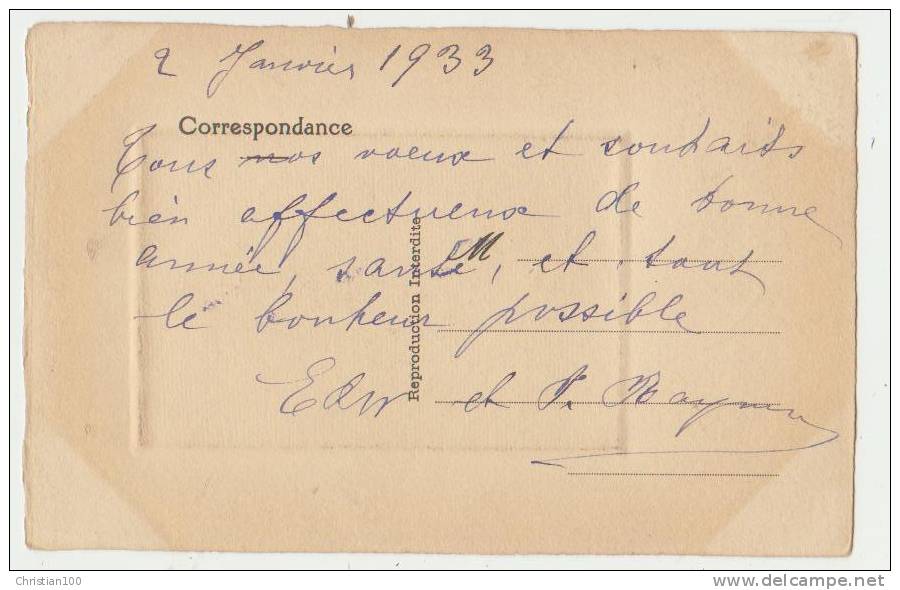 2 Janvier 1933
Correspondance
Tous nos voeux et souhaits
bien affectueux de bonne
année, santé, et tout
le bonheur possible
Edw et F. Raynor
Reproduction Interdite
M
Christian100
www.delcampe.net